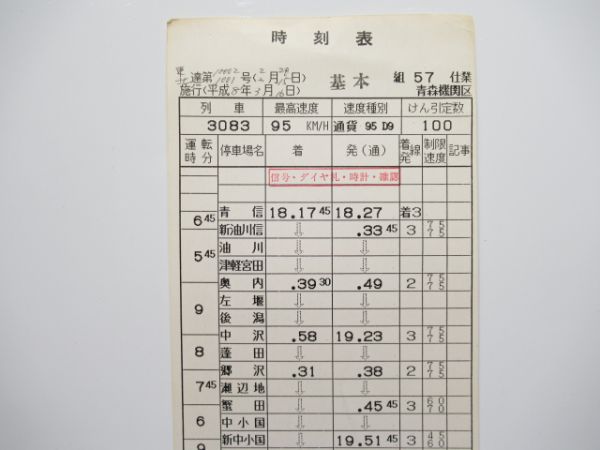 時刻表
達第10002号(2月29日)
施行(平成8年3月16日)
基本 組 57 仕業
青森機関区
列車 最高速度 速度種別 けん引定数
3083 95 KM/H 通貨 95 D9 100
運転時分 停車場名 着 発(通) 着発線 制限速度 記事
信号・ダイヤ札・時計・確認
青信 18.17 45 18.27 着3
6 45
新油川信 ⇩ .33 45 3 75 75
油川 ⇩ ⇩
5 45
津軽宮田 ⇩ ⇩
奥内 .39 30 .49 2 75 75
左堰 ⇩ ⇩
9
後潟 ⇩ ⇩
中沢 .58 19.23 3 75 75
8
蓬田 ⇩ ⇩
郷沢 .31 .38 2 75 75
7 45
瀬辺地 ⇩ ⇩
蟹田 ⇩ .45 45 3 60 70
6
中小国 ⇩ ⇩
新中小国 ⇩ 19.51 45 3 45 60
9